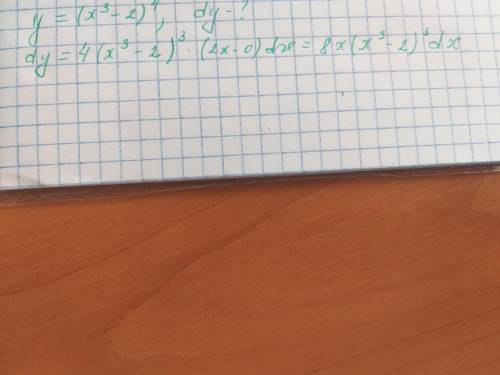 y = (x³-2)⁴, dy-?
dy = 4(x³-2)³·(2x-0)dx = 8x(x³-2)³dx.